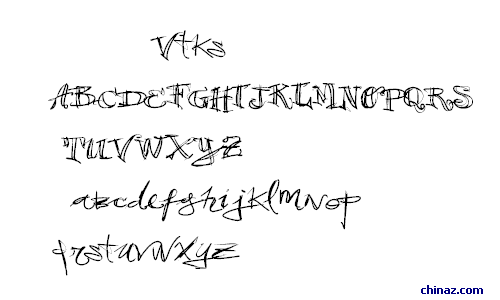 Vtks
ABCDEFGHIJKLMNOPQRS
TUVWXYZ
abcdefghijklmnop
qrstuvwxyz
chinaz.com